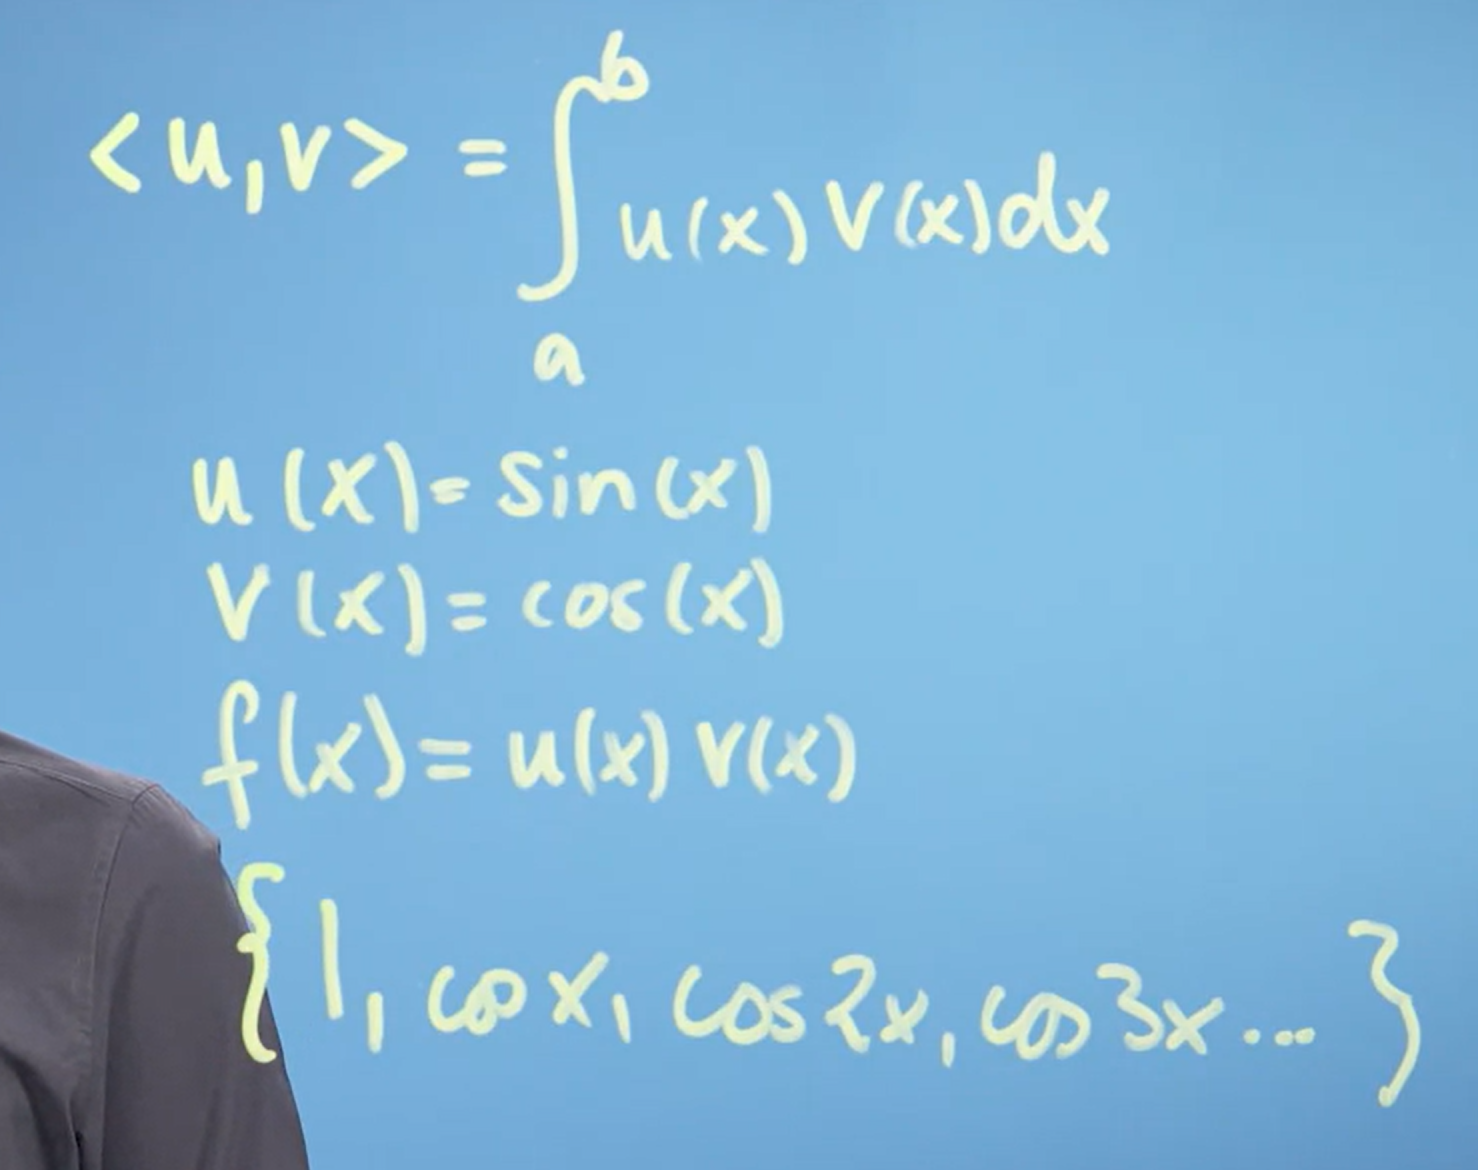 <u,v> = ∫_a^b u(x) v(x) dx
u(x) = sin(x)
v(x) = cos(x)
f(x) = u(x) v(x)
{ 1, cos x, cos 2x, cos 3x ... }